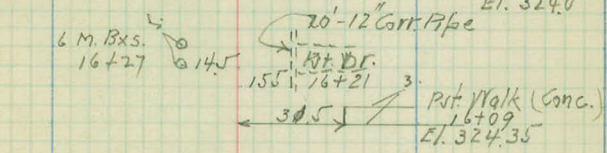 El. 324.0
20'-12" Corr. Pipe
6 M. Bxs.
16+27
14.5
Pvt. Dr.
16+21
15.5
3.
30.5
Pvt. Walk (Conc.)
16+09
El. 324.35